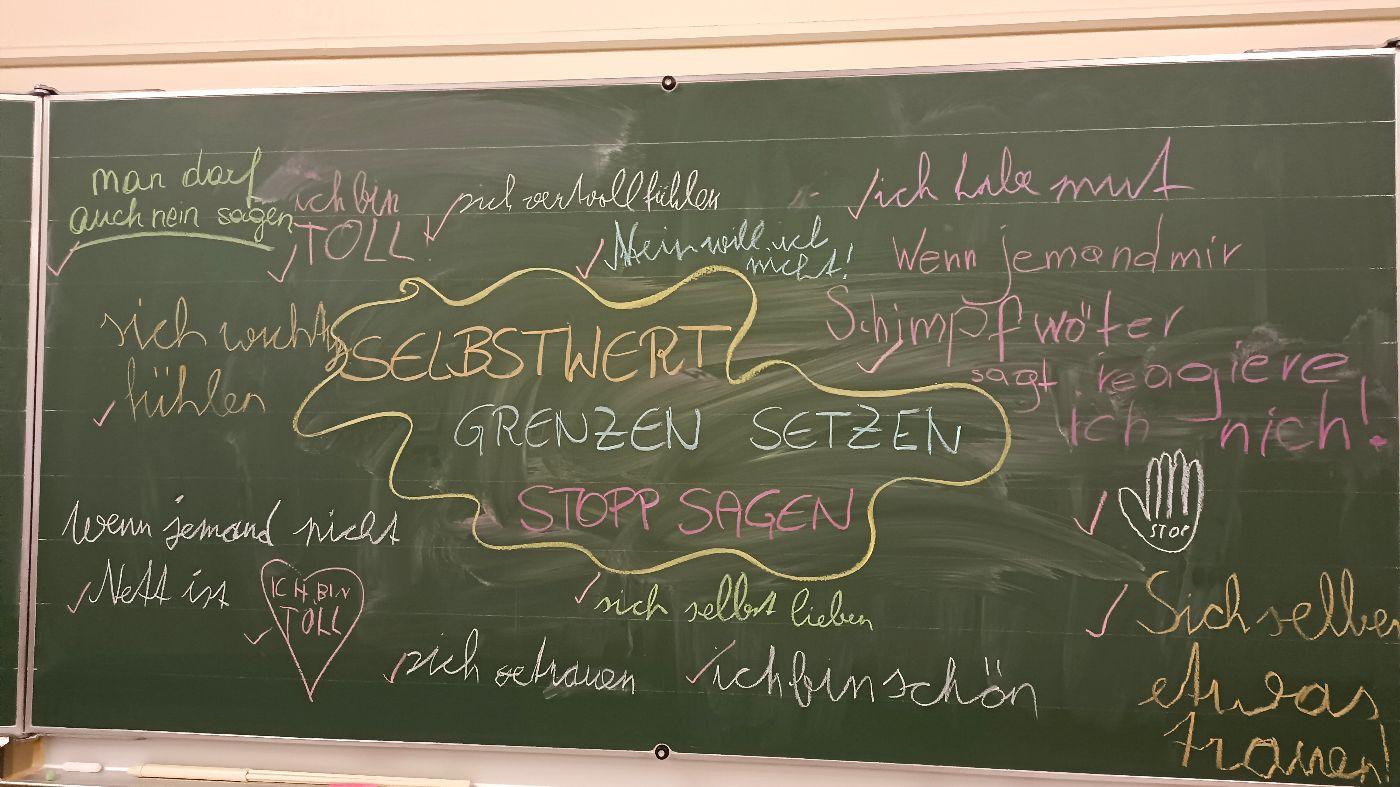 man darf
auch nein sagen
ich bin
TOLL
sich vertvoll fühlen
Nein will ich
nicht!
ich habe mut
Wenn jemand mir
Schimpfwöter
sagt reagiere
ich nich!
sich
fühlen
SELBSTWERT
GRENZEN SETZEN
STOPP SAGEN
STOP
wenn jemand nicht
Nett ist
ICH BIN
TOLL
sich selbst lieben
sich getrauen
ich bin schön
Sich selber
etwas
trauen!